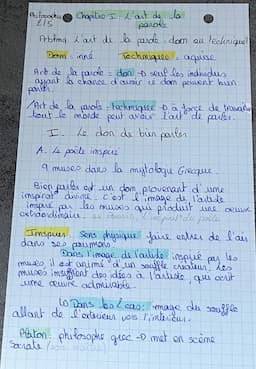 Philosophie Chapitre I : L'art de la
1/5 parole
L'art de la parole : don ou technique ?
Don : inné Technique : acquise
Art de la parole = don → seul les individus
ayant la chance d'avoir ce don peuvent bien
parler
/ Art de la parole = technique → à force de travail
tout le monde peut avoir l'art de parler.
I. Le don de bien parler
A. Le poète inspiré
9 muses dans la mythologie Grecque.
Bien parler est un don provenant d'une
divine, c'est l'image de l'artiste
inspiré par les muses qui produit une œuvre
extraordinaire.
Inspirer : Sens physique : faire entrer de l'air
dans ses poumons.
Dans l'image de l'artiste inspiré par les
muses, il est animé d'un souffle créateur. Les
muses insufflent des idées à l'artiste, qui
une œuvre admirable.
↳ Dans les 2 cas : image du souffle
allant de l'extérieur vers l'intérieur.
Platon : philosophe grec → met en scène
Socrate